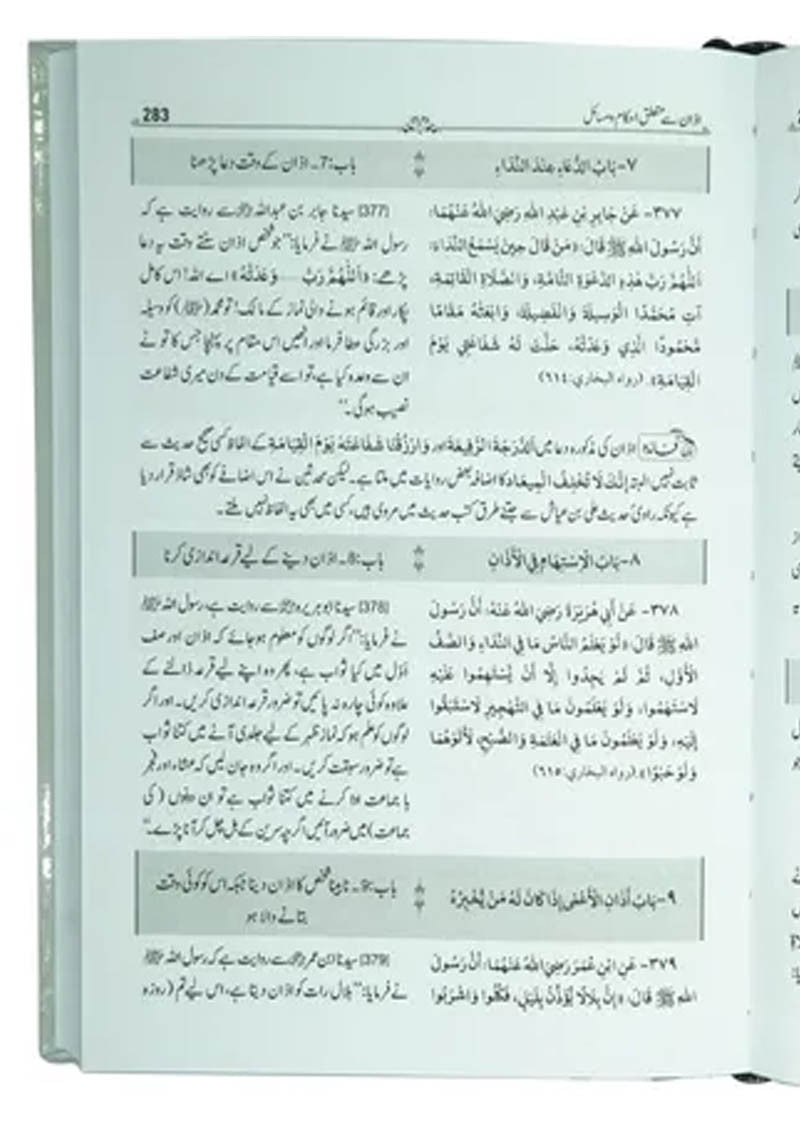 اذان سے متعلق احکام ومسائل
283
٧- بَابُ الدُّعَاءِ عِنْدَ النِّدَاءِ
باب:7۔ اذان کے وقت دعا پڑھنا
٣٧٧- عَنْ جَابِرِ بْنِ عَبْدِ اللهِ رَضِيَ اللهُ عَنْهُمَا:
أَنَّ رَسُولَ اللهِ ﷺ قَالَ: «مَنْ قَالَ حِينَ يَسْمَعُ النِّدَاءَ:
اَللّٰهُمَّ رَبَّ هٰذِهِ الدَّعْوَةِ التَّامَّةِ، وَالصَّلَاةِ الْقَائِمَةِ،
آتِ مُحَمَّدًا الْوَسِيلَةَ وَالْفَضِيلَةَ، وَابْعَثْهُ مَقَامًا
مَّحْمُودًا الَّذِي وَعَدْتَّهُ، حَلَّتْ لَهُ شَفَاعَتِي يَوْمَ
الْقِيَامَةِ». (رواه البخاري: ٦١٤)
(377) سیدنا جابر بن عبداللہ ؓ سے روایت ہے کہ
رسول اللہ ﷺ نے فرمایا: ”جو شخص اذان سنتے وقت یہ دعا
پڑھے: «اَللّٰهُمَّ رَبَّ ..... وَعَدْتَّهُ» اے اللہ! اس کامل
پکار اور قائم ہونے والی نماز کے مالک! تو محمد (ﷺ) کو وسیلہ
اور بزرگی عطا فرما اور انھیں اس مقام پر پہنچا جس کا تو نے
ان سے وعدہ کیا ہے، تو اسے قیامت کے دن میری شفاعت
نصیب ہوگی۔“
فائدہ اذان کی مذکورہ دعا میں اَلدَّرَجَةَ الرَّفِيعَةَ اور وَارْزُقْنَا شَفَاعَتَهُ يَوْمَ الْقِيَامَةِ کے الفاظ کسی صحیح حدیث سے
ثابت نہیں البتہ إِنَّكَ لَا تُخْلِفُ الْمِيعَادَ کا اضافہ بعض روایات میں ملتا ہے۔ لیکن محدثین نے اس اضافے کو بھی شاذ قرار دیا
ہے کیونکہ راویٔ حدیث علی بن عیاش سے جتنے طرق کتب حدیث میں مروی ہیں، کسی میں بھی یہ الفاظ نہیں ملتے۔
٨- بَابُ الْاِسْتِهَامِ فِي الْأَذَانِ
باب:8۔ اذان دینے کے لیے قرعہ اندازی کرنا
٣٧٨- عَنْ أَبِي هُرَيْرَةَ رَضِيَ اللهُ عَنْهُ: أَنَّ رَسُولَ
اللهِ ﷺ قَالَ: «لَوْ يَعْلَمُ النَّاسُ مَا فِي النِّدَاءِ وَالصَّفِّ
الْأَوَّلِ، ثُمَّ لَمْ يَجِدُوا إِلَّا أَنْ يَّسْتَهِمُوا عَلَيْهِ
لَاسْتَهَمُوا، وَلَوْ يَعْلَمُونَ مَا فِي التَّهْجِيرِ لَاسْتَبَقُوا
إِلَيْهِ، وَلَوْ يَعْلَمُونَ مَا فِي الْعَتَمَةِ وَالصُّبْحِ، لَأَتَوْهُمَا
وَلَوْ حَبْوًا». (رواه البخاري: ٦١٥)
(378) سیدنا ابوہریرہ ؓ سے روایت ہے، رسول اللہ ﷺ
نے فرمایا: ”اگر لوگوں کو معلوم ہو جائے کہ اذان اور صف
اول میں کیا ثواب ہے، پھر وہ اپنے لیے قرعہ ڈالنے کے
علاوہ کوئی چارہ نہ پائیں تو ضرور قرعہ اندازی کریں۔ اور اگر
لوگوں کو علم ہو کہ نماز ظہر کے لیے جلدی آنے میں کتنا ثواب
ہے تو ضرور سبقت کریں۔ اور اگر وہ جان لیں کہ عشاء اور فجر
با جماعت ادا کرنے میں کتنا ثواب ہے تو ان دونوں (کی
جماعت) میں ضرور آئیں اگرچہ سرین کے بل چل کر آنا پڑے۔“
٩- بَابُ أَذَانِ الْأَعْمٰى إِذَا كَانَ لَهُ مَنْ يُّخْبِرُهُ
باب:9۔ نابینا شخص کا اذان دینا جبکہ اس کو کوئی وقت
بتانے والا ہو
٣٧٩- عَنِ ابْنِ عُمَرَ رَضِيَ اللهُ عَنْهُمَا: أَنَّ رَسُولَ
اللهِ ﷺ قَالَ: «إِنَّ بِلَالًا يُؤَذِّنُ بِلَيْلٍ، فَكُلُوا وَاشْرَبُوا
(379) سیدنا ابن عمر ؓ سے روایت ہے کہ رسول اللہ ﷺ
نے فرمایا: ”بلال رات کو اذان دیتا ہے، اس لیے تم (روزہ